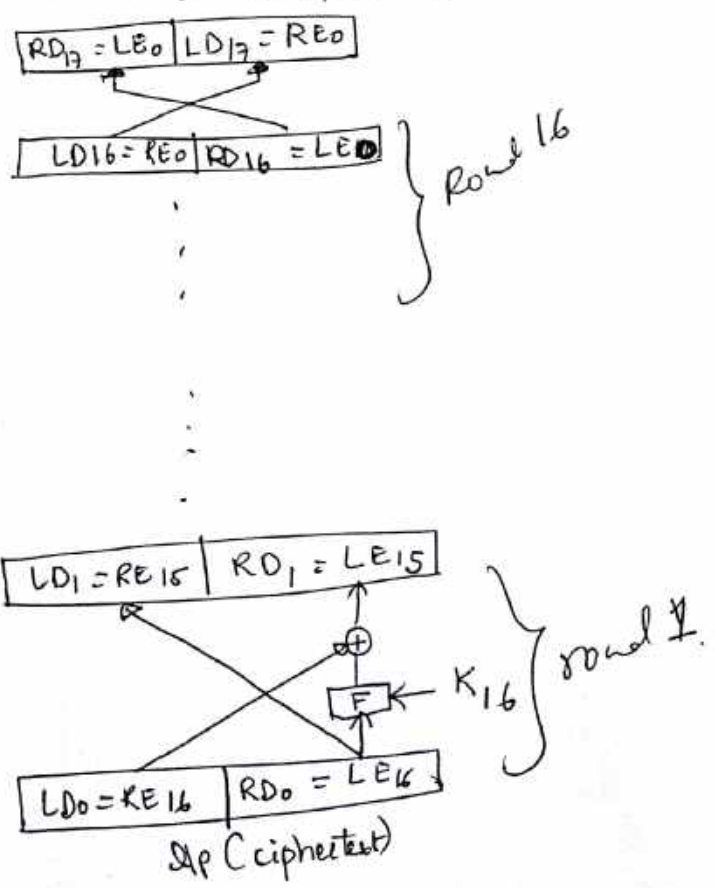 RD17 = LE0 | LD17 = RE0
LD16 = RE0 | RD16 = LE0
Round 16
LD1 = RE15 | RD1 = LE15
+
F
K16
round 1.
LD0 = RE16 | RD0 = LE16
(ciphertext)